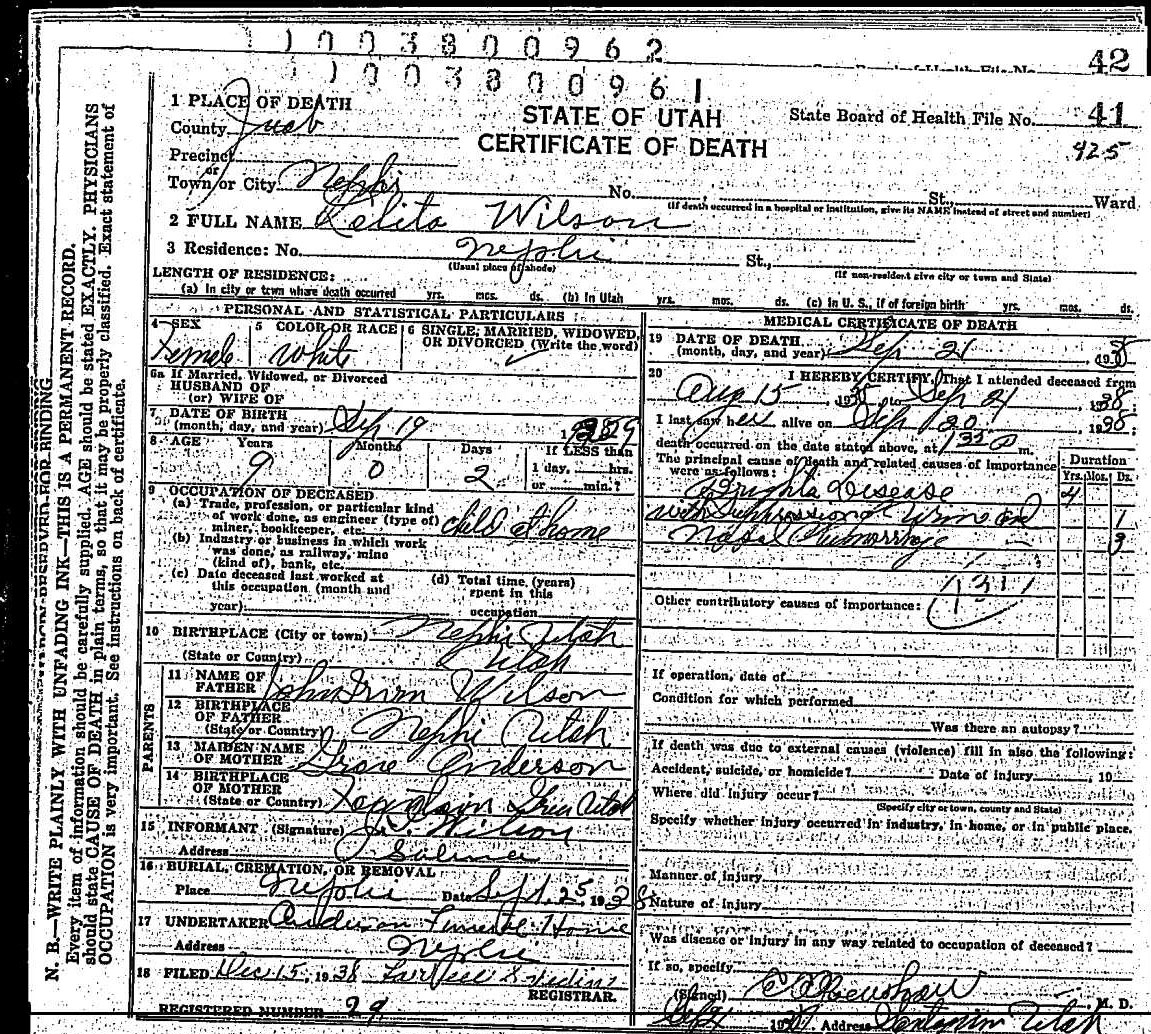 1003800962
42
1003800961
1 PLACE OF DEATH
STATE OF UTAH
State Board of Health File No. 41
County Juab
CERTIFICATE OF DEATH
425
Precinct
or
Town or City Nephi No. , St., Ward
(If death occurred in a hospital or institution, give its NAME instead of street and number)
2 FULL NAME Lelita Wilson
3 Residence: No. Nephi St.,
(Usual place of abode) (If non-resident give city or town and State)
LENGTH OF RESIDENCE:
(a) In city or town where death occurred yrs. mos. ds. (b) In Utah yrs. mos. ds. (c) In U. S., if of foreign birth yrs. mos. ds.
PERSONAL AND STATISTICAL PARTICULARS
4 SEX Female
5 COLOR OR RACE White
6 SINGLE, MARRIED, WIDOWED, OR DIVORCED (Write the word)
6a If Married, Widowed, or Divorced
HUSBAND OF
(or) WIFE OF
7 DATE OF BIRTH
(month, day, and year) Sep 19 1929
8 AGE Years Months Days If LESS than
9 0 2 1 day, hrs.
or min.?
9 OCCUPATION OF DECEASED
(a) Trade, profession, or particular kind
of work done, as engineer (type of) child at home
miner, bookkeeper, etc.
(b) Industry or business in which work
was done, as railway, mine
(kind of), bank, etc.
(c) Date deceased last worked at
this occupation (month and
year)
(d) Total time (years)
spent in this
occupation
10 BIRTHPLACE (City or town) Nephi Utah
(State or Country) Utah
PARENTS
11 NAME OF
FATHER John Wilson
12 BIRTHPLACE
OF FATHER
(State or Country) Nephi Utah
13 MAIDEN NAME
OF MOTHER Grace Anderson
14 BIRTHPLACE
OF MOTHER
(State or Country) Fountain Green Utah
15 INFORMANT (Signature) Wilson
Address Salina
16 BURIAL, CREMATION, OR REMOVAL
Place Nephi Date Sept. 25, 1938
17 UNDERTAKER Anderson Funeral Home
Address Nephi
18 FILED Dec 15, 1938
REGISTRAR.
REGISTERED NUMBER 29
MEDICAL CERTIFICATE OF DEATH
19 DATE OF DEATH
(month, day, and year) Sep 21, 1938
20 I HEREBY CERTIFY, That I attended deceased from
Aug 15, 1938 to Sep 21, 1938
I last saw her alive on Sep 20, 1938
death occurred on the date stated above, at m.
The principal cause of death and related causes of importance
were as follows:
Duration
Yrs. Mos. Ds.
Brights Disease 4
with Suppression of Urine and 1
Nasal Hemorrhage 3
131
Other contributory causes of importance:
If operation, date of
Condition for which performed
Was there an autopsy?
If death was due to external causes (violence) fill in also the following:
Accident, suicide, or homicide? Date of injury , 19
Where did injury occur?
(Specify city or town, county and State)
Specify whether injury occurred in industry, in home, or in public place.
Manner of injury
Nature of injury
Was disease or injury in any way related to occupation of deceased?
If so, specify
(Signed) M. D.
Address Utah
N. B.—WRITE PLAINLY WITH UNFADING INK—THIS IS A PERMANENT RECORD.
Every item of information should be carefully supplied. AGE should be stated EXACTLY. PHYSICIANS
should state CAUSE OF DEATH in plain terms, so that it may be properly classified. Exact statement of
OCCUPATION is very important. See instructions on back of certificate.